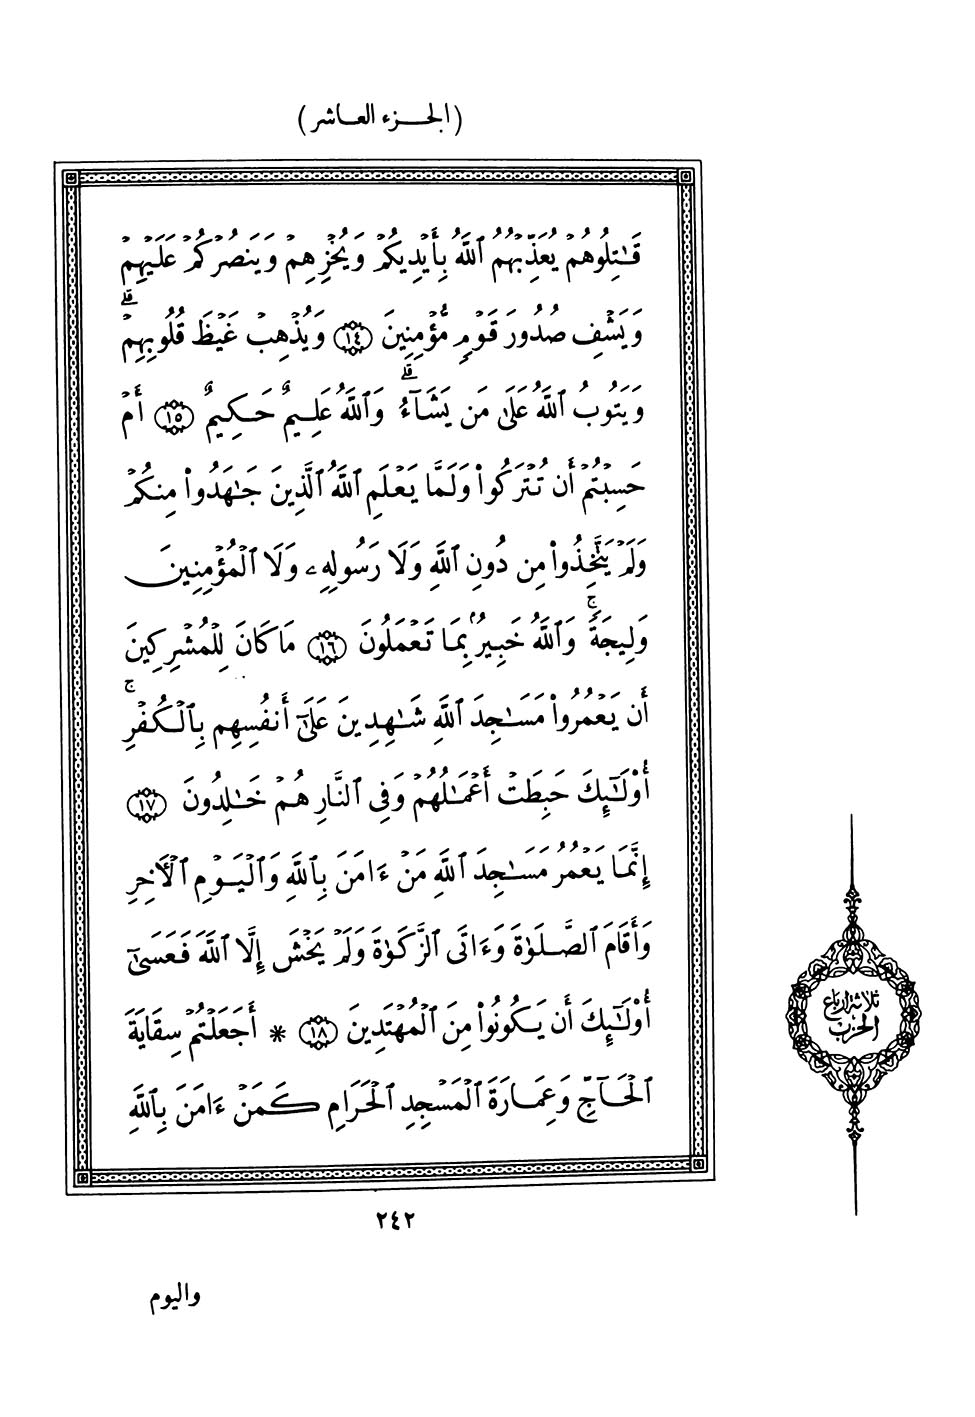 (الجزء العاشر)
قَـٰتِلُوهُمْ يُعَذِّبْهُمُ ٱللَّهُ بِأَيْدِيكُمْ وَيُخْزِهِمْ وَيَنصُرْكُمْ عَلَيْهِمْ
وَيَشْفِ صُدُورَ قَوْمٍ مُّؤْمِنِينَ ١٤ وَيُذْهِبْ غَيْظَ قُلُوبِهِمْ ۗ
وَيَتُوبُ ٱللَّهُ عَلَىٰ مَن يَشَآءُ ۗ وَٱللَّهُ عَلِيمٌ حَكِيمٌ ١٥ أَمْ
حَسِبْتُمْ أَن تُتْرَكُوا۟ وَلَمَّا يَعْلَمِ ٱللَّهُ ٱلَّذِينَ جَـٰهَدُوا۟ مِنكُمْ
وَلَمْ يَتَّخِذُوا۟ مِن دُونِ ٱللَّهِ وَلَا رَسُولِهِۦ وَلَا ٱلْمُؤْمِنِينَ
وَلِيجَةً ۚ وَٱللَّهُ خَبِيرٌۢ بِمَا تَعْمَلُونَ ١٦ مَا كَانَ لِلْمُشْرِكِينَ
أَن يَعْمُرُوا۟ مَسَـٰجِدَ ٱللَّهِ شَـٰهِدِينَ عَلَىٰٓ أَنفُسِهِم بِٱلْكُفْرِ ۚ
أُو۟لَـٰٓئِكَ حَبِطَتْ أَعْمَـٰلُهُمْ وَفِى ٱلنَّارِ هُمْ خَـٰلِدُونَ ١٧
إِنَّمَا يَعْمُرُ مَسَـٰجِدَ ٱللَّهِ مَنْ ءَامَنَ بِٱللَّهِ وَٱلْيَوْمِ ٱلْـَٔاخِرِ
وَأَقَامَ ٱلصَّلَوٰةَ وَءَاتَى ٱلزَّكَوٰةَ وَلَمْ يَخْشَ إِلَّا ٱللَّهَ فَعَسَىٰٓ
أُو۟لَـٰٓئِكَ أَن يَكُونُوا۟ مِنَ ٱلْمُهْتَدِينَ ١٨ * أَجَعَلْتُمْ سِقَايَةَ
ٱلْحَآجِّ وَعِمَارَةَ ٱلْمَسْجِدِ ٱلْحَرَامِ كَمَنْ ءَامَنَ بِٱللَّهِ
ثلاثة ارباع
الحزب
٢٤٢
واليوم